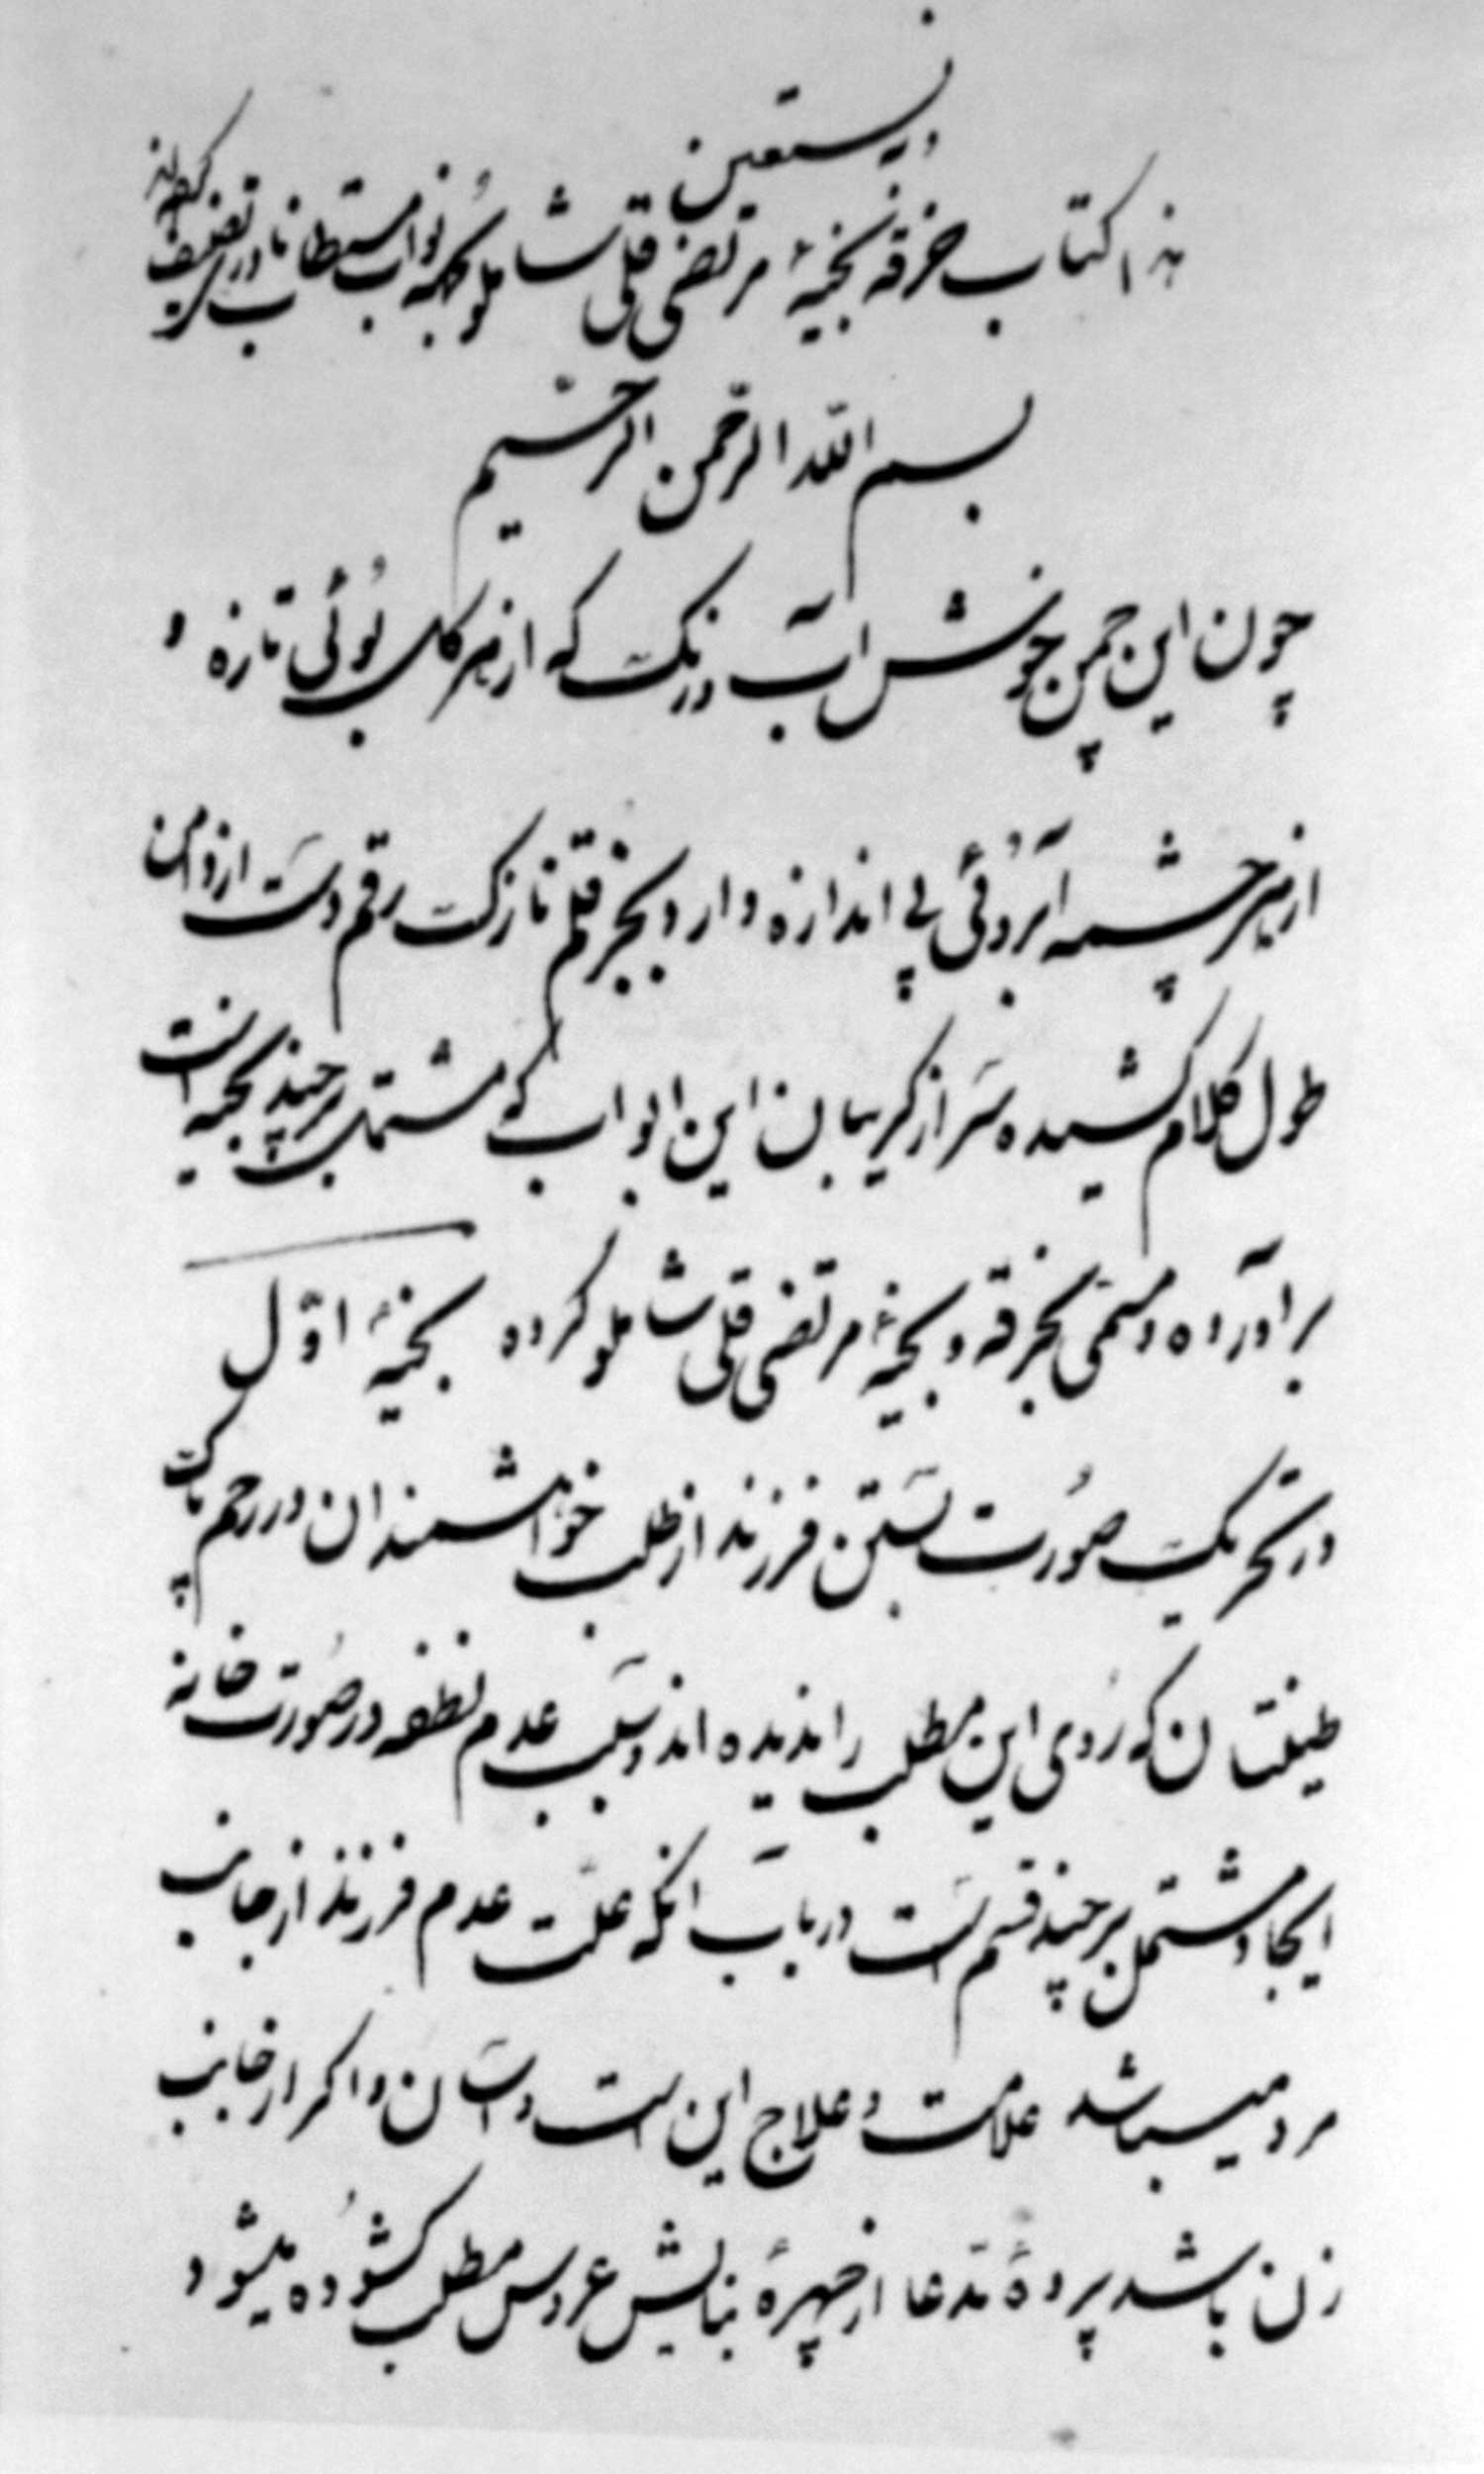 و به نستعین
هذا کتاب خرقه بخیهٔ مرتضی قلی شاملو بجهة نواب مستطاب نادر تصنیف
بسم الله الرحمن الرحیم
چون این چمن خوش آب و رنگ که از هر گلی بوئی تازه و
از هر چشمه آبروئی بی اندازه دارد بجز قلم نازک رقم دست از دامن
طول کلام کشیده سر از گریبان این ابواب که مشتمل بر چند بخیه است
بر اورده و مسمی بخرقه و بخیهٔ مرتضی قلی شاملو کرده بخیهٔ اوّل
در تحریک صورت بستن فرزند از طلب خواهشمندان در رحم پاک
طینتان که روی این مطلب را ندیده اند و سبب عدم نطفه در صورت خانه
ایجاد مشتمل بر چند قسم است در باب آنکه علت عدم فرزند از جانب
مرد میباشد علامت و علاج این است و آسان و اگر از جانب
زن باشد پردهٔ مدعا از چهرهٔ بنایش عروس مطلب گشوده میشود